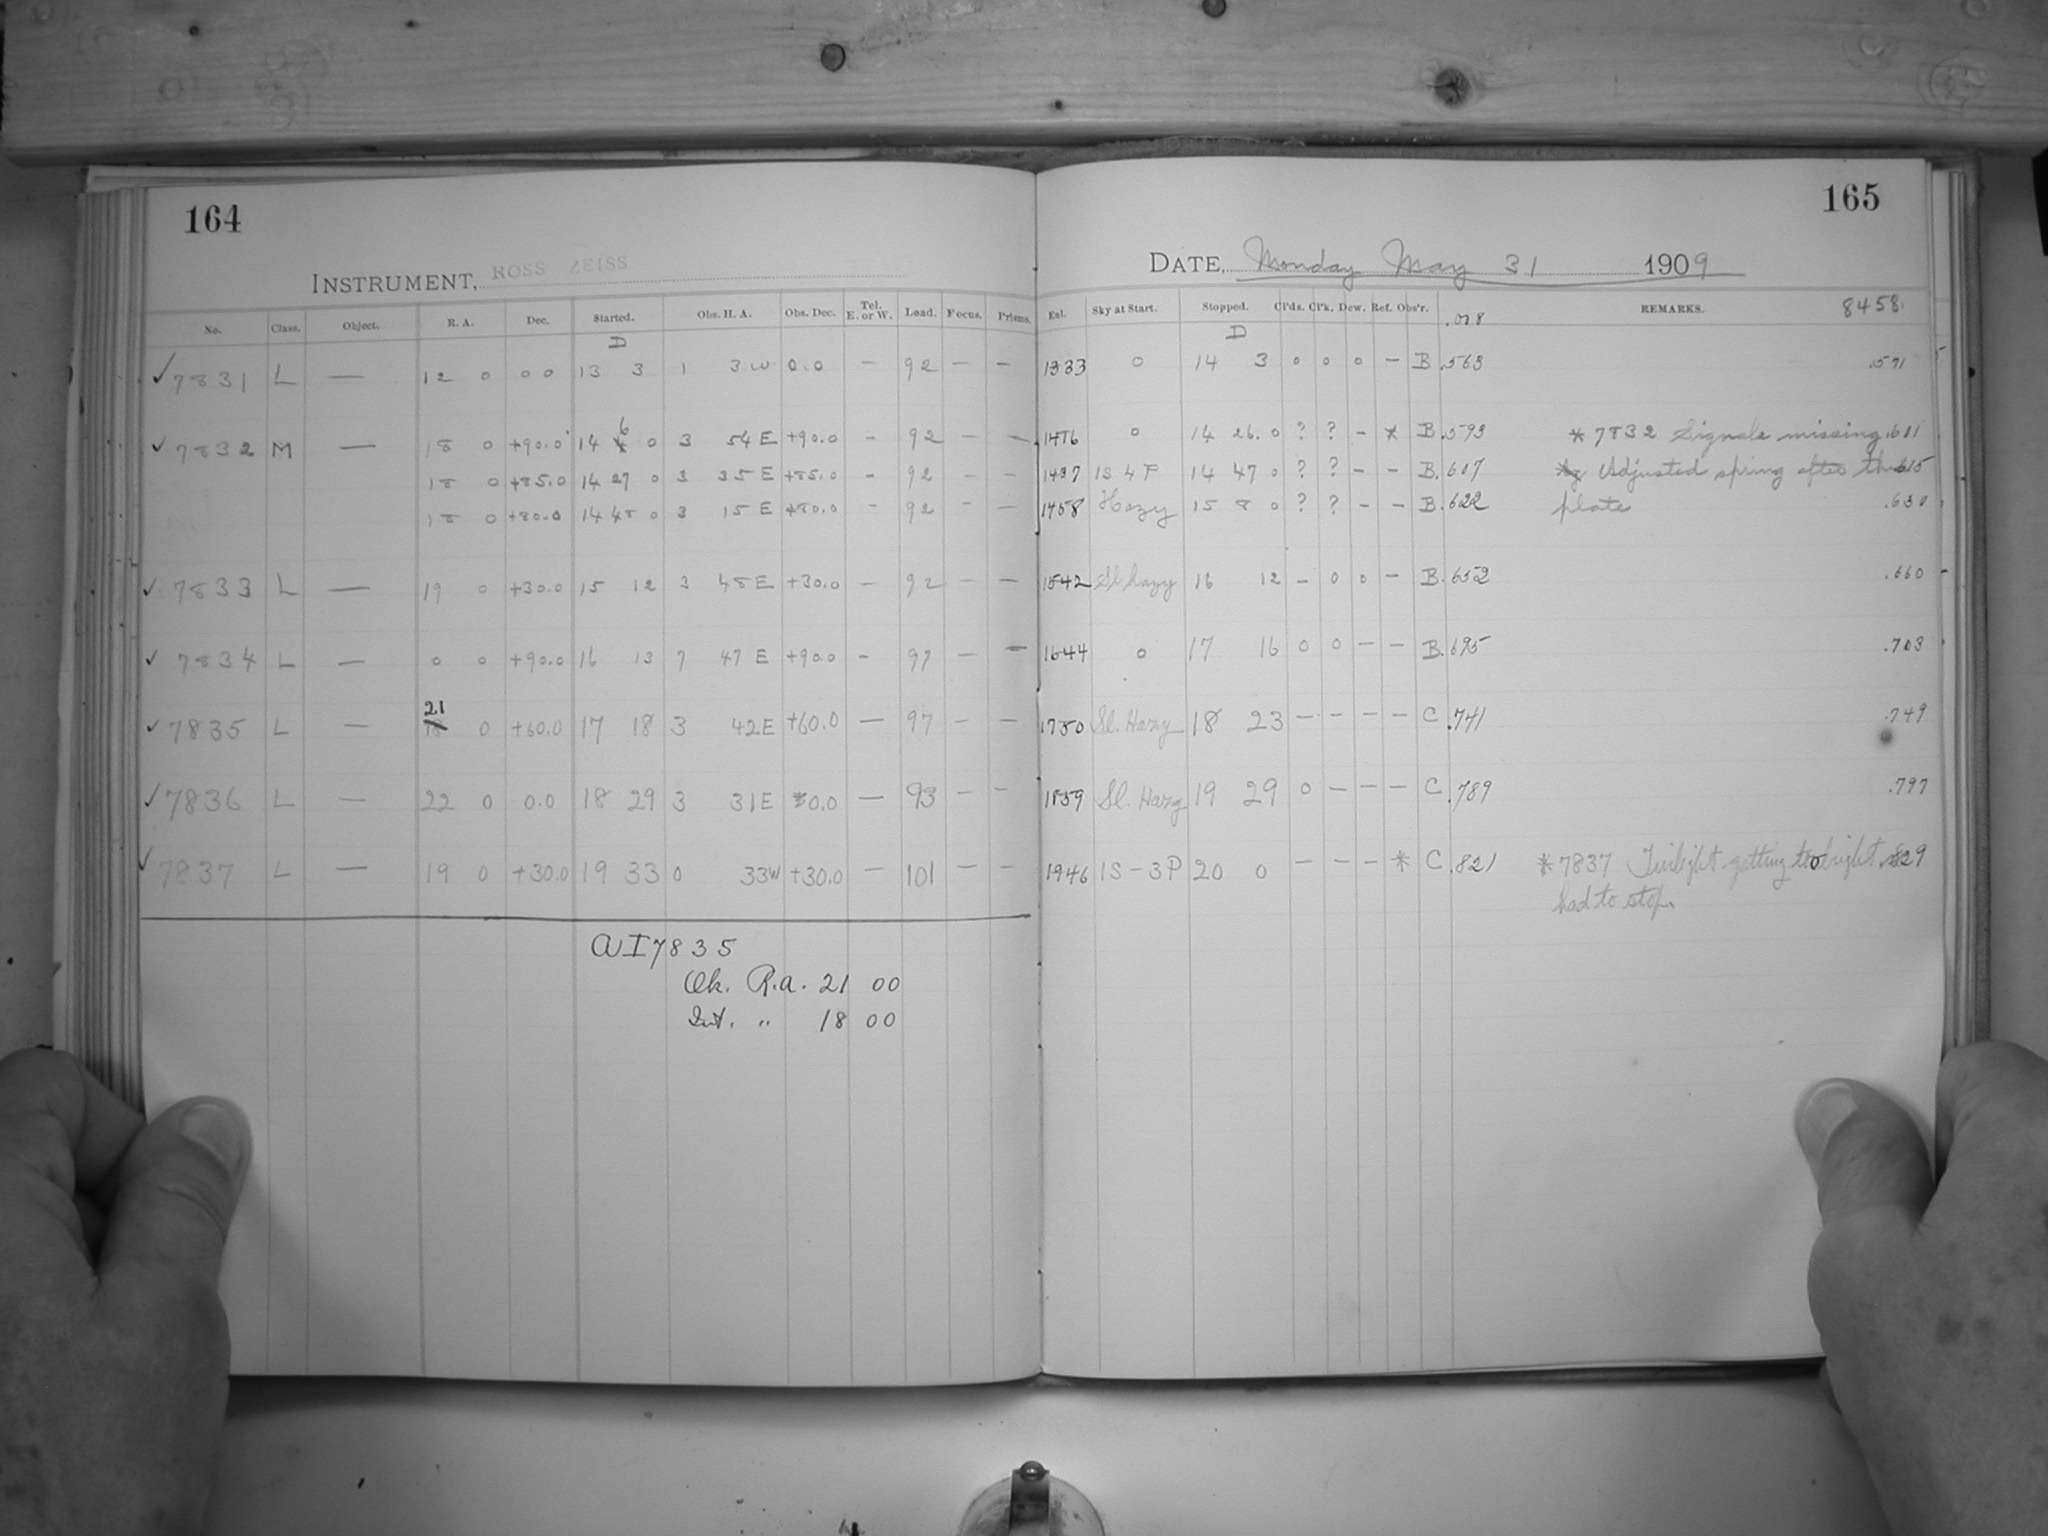 164
INSTRUMENT, ROSS ZEISS
No. Class. Object. R. A. Dec. Started. Obs. H. A. Obs. Dec. Tel. E. or W. Load. Focus. Prisms.
D
✓ 7831 L — 12 0 0 0 13 3 1 3 W 0.0 — 92 — —
✓ 7832 M — 18 0 +90.0 14 6 0 3 54 E +90.0 - 92 — —
18 0 +85.0 14 27 0 3 35 E +85.0 - 92 — —
18 0 +80.0 14 48 0 3 15 E +80.0 - 92 — —
✓ 7833 L — 19 0 +30.0 15 12 3 48 E +30.0 — 92 — —
✓ 7834 L — 0 0 +90.0 16 13 7 47 E +90.0 - 97 — —
21
✓ 7835 L — 18 0 +60.0 17 18 3 42 E +60.0 — 97 — —
✓ 7836 L — 22 0 0.0 18 29 3 31 E 0.0 — 93 — —
✓ 7837 L — 19 0 +30.0 19 33 0 33 W +30.0 — 101 — —
AI 7835
Ok. R.a. 21 00
Int. " 18 00
165
DATE, Monday May 31 1909
Exl. Sky at Start. Stopped. Cl'ds. Cl'k. Dew. Ref. Obs'r. REMARKS. 8458.
D
1333 0 14 3 0 0 0 — B .563 .571
1416 0 14 26. 0 ? ? - * B .593 * 7832 Signals missing .611
1437 1S 4P 14 47 0 ? ? - - B. .607 Adjusted spring after this .615
1458 Hazy 15 8 0 ? ? - - B .622 plate .630
1542 Sl hazy 16 12 - 0 0 - B .652 .660
1644 0 17 16 0 0 — — B .695 .703
1750 Sl. Hazy 18 23 — — — — C .741 .749
1859 Sl. Hazy 19 29 0 — — — C .789 .797
1946 1S-3P 20 0 — — — * C .821 * 7837 Twilight getting too bright .829
had to stop.